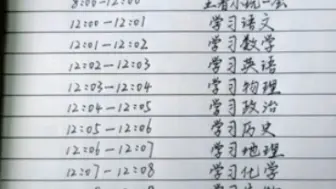 8:00—12:00 王者小玩一会
12:00—12:01 学习语文
12:01—12:02 学习数学
12:02—12:03 学习英语
12:03—12:04 学习物理
12:04—12:05 学习政治
12:05—12:06 学习历史
12:06—12:07 学习地理
12:07—12:08 学习化学